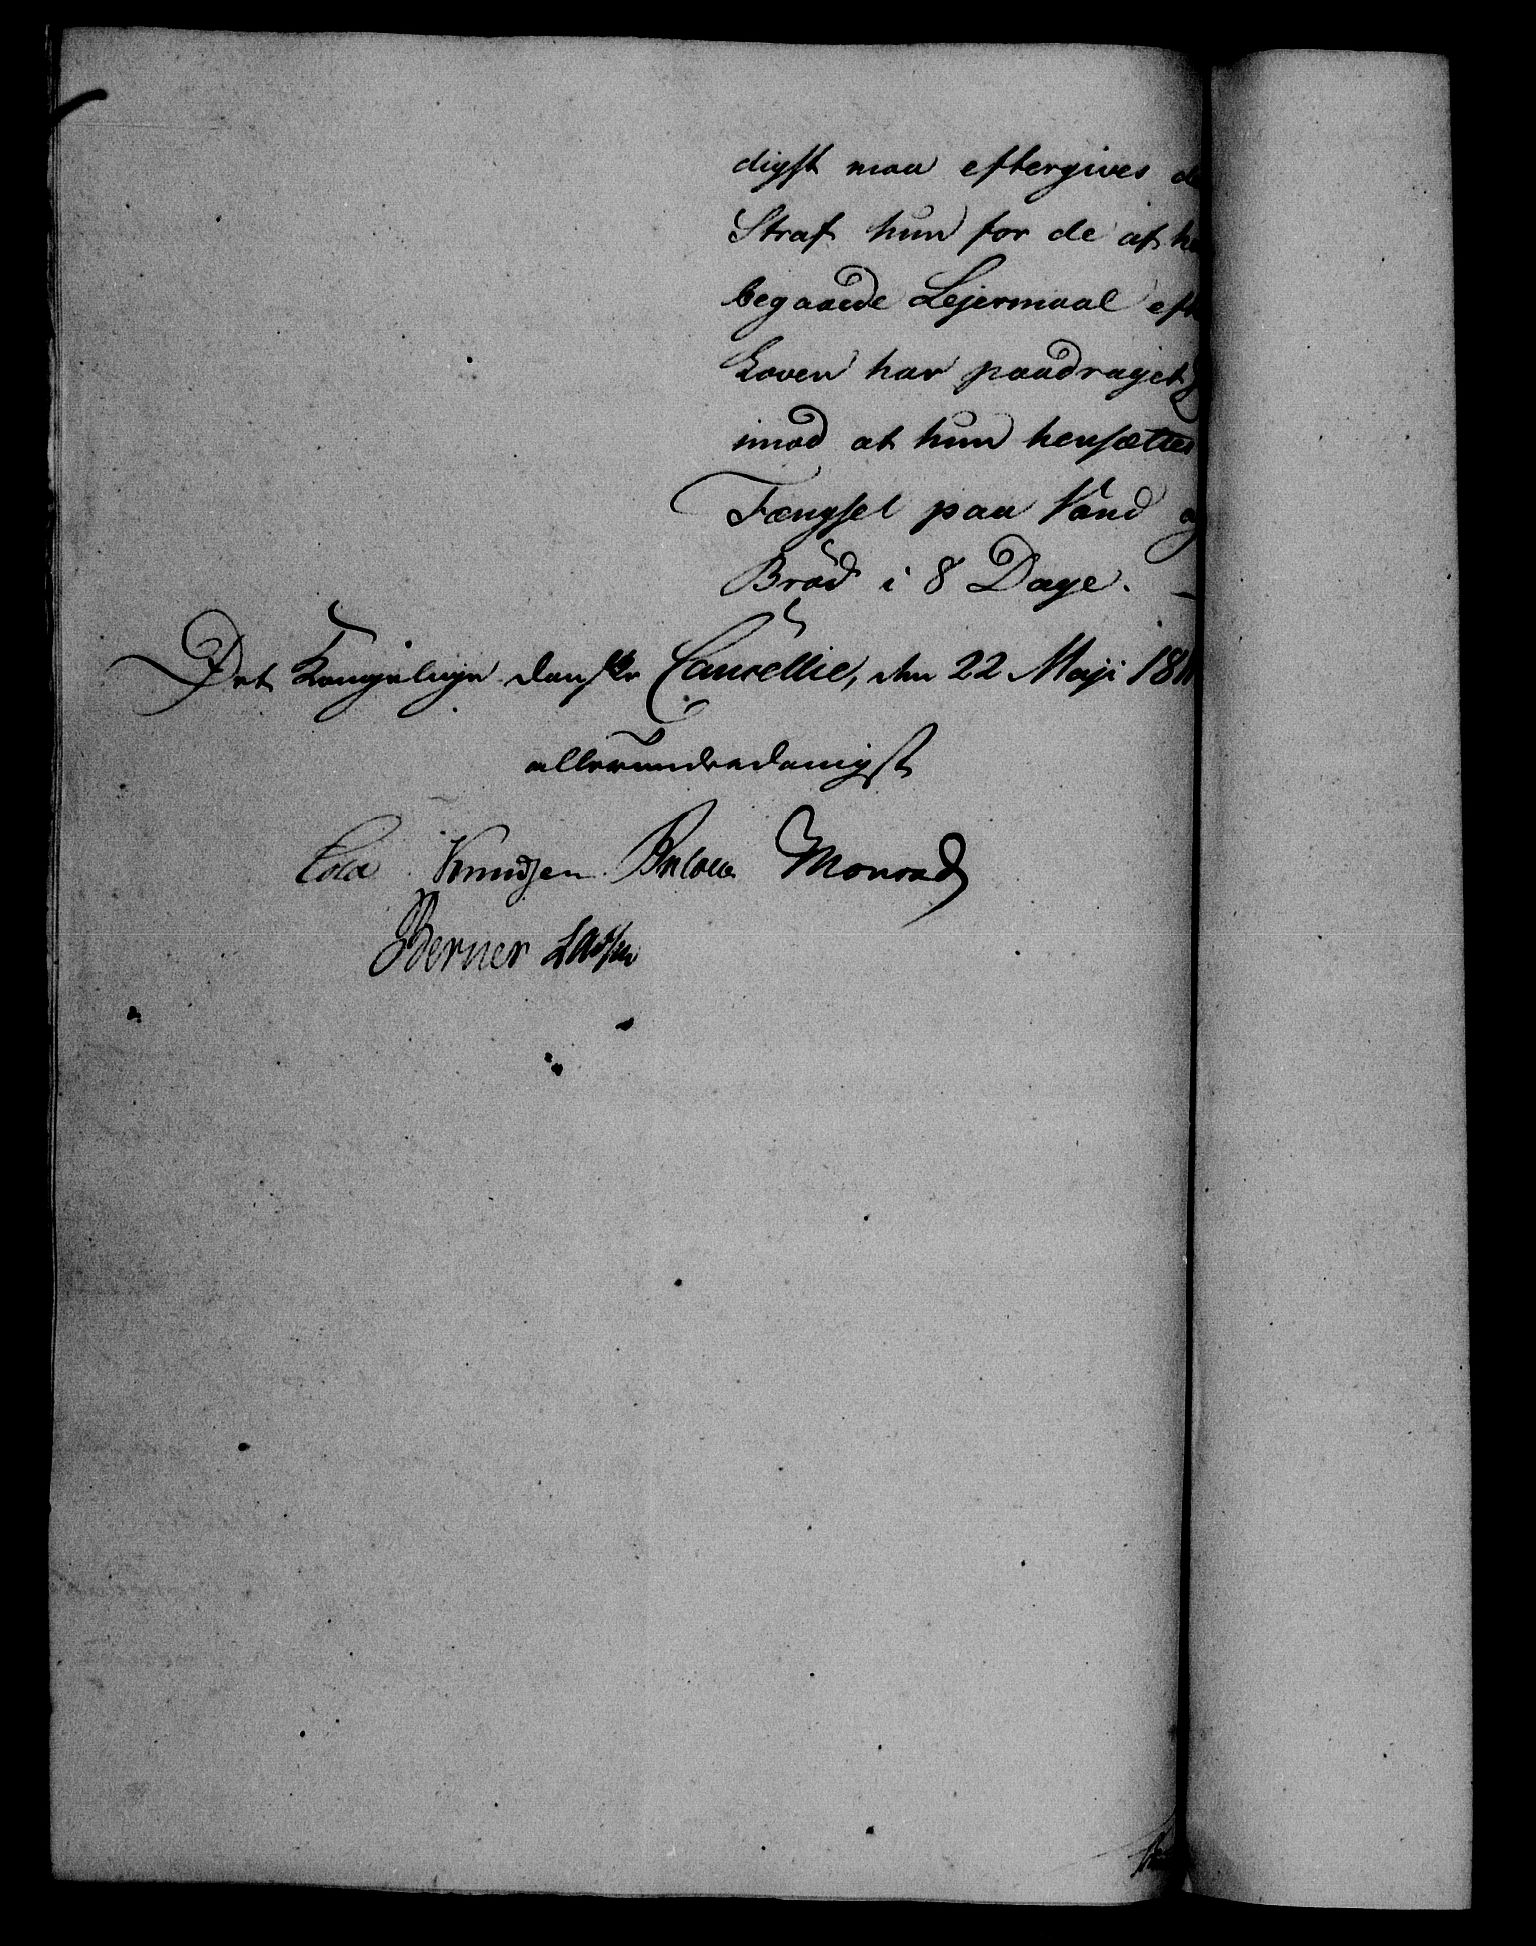 digst maa eftergives de
Straf hun for de af he
begaaede Lejermaal eft
Loven har paadraget
imod at hun hensættes
Fængsel paa Vand og
Brød i 8 Dage. –
Det Kongelige danske Cancellie, den 22 Maji 181
allerunderdanigst
Cold Knudsen Bülow Monrad
Berner Lassen